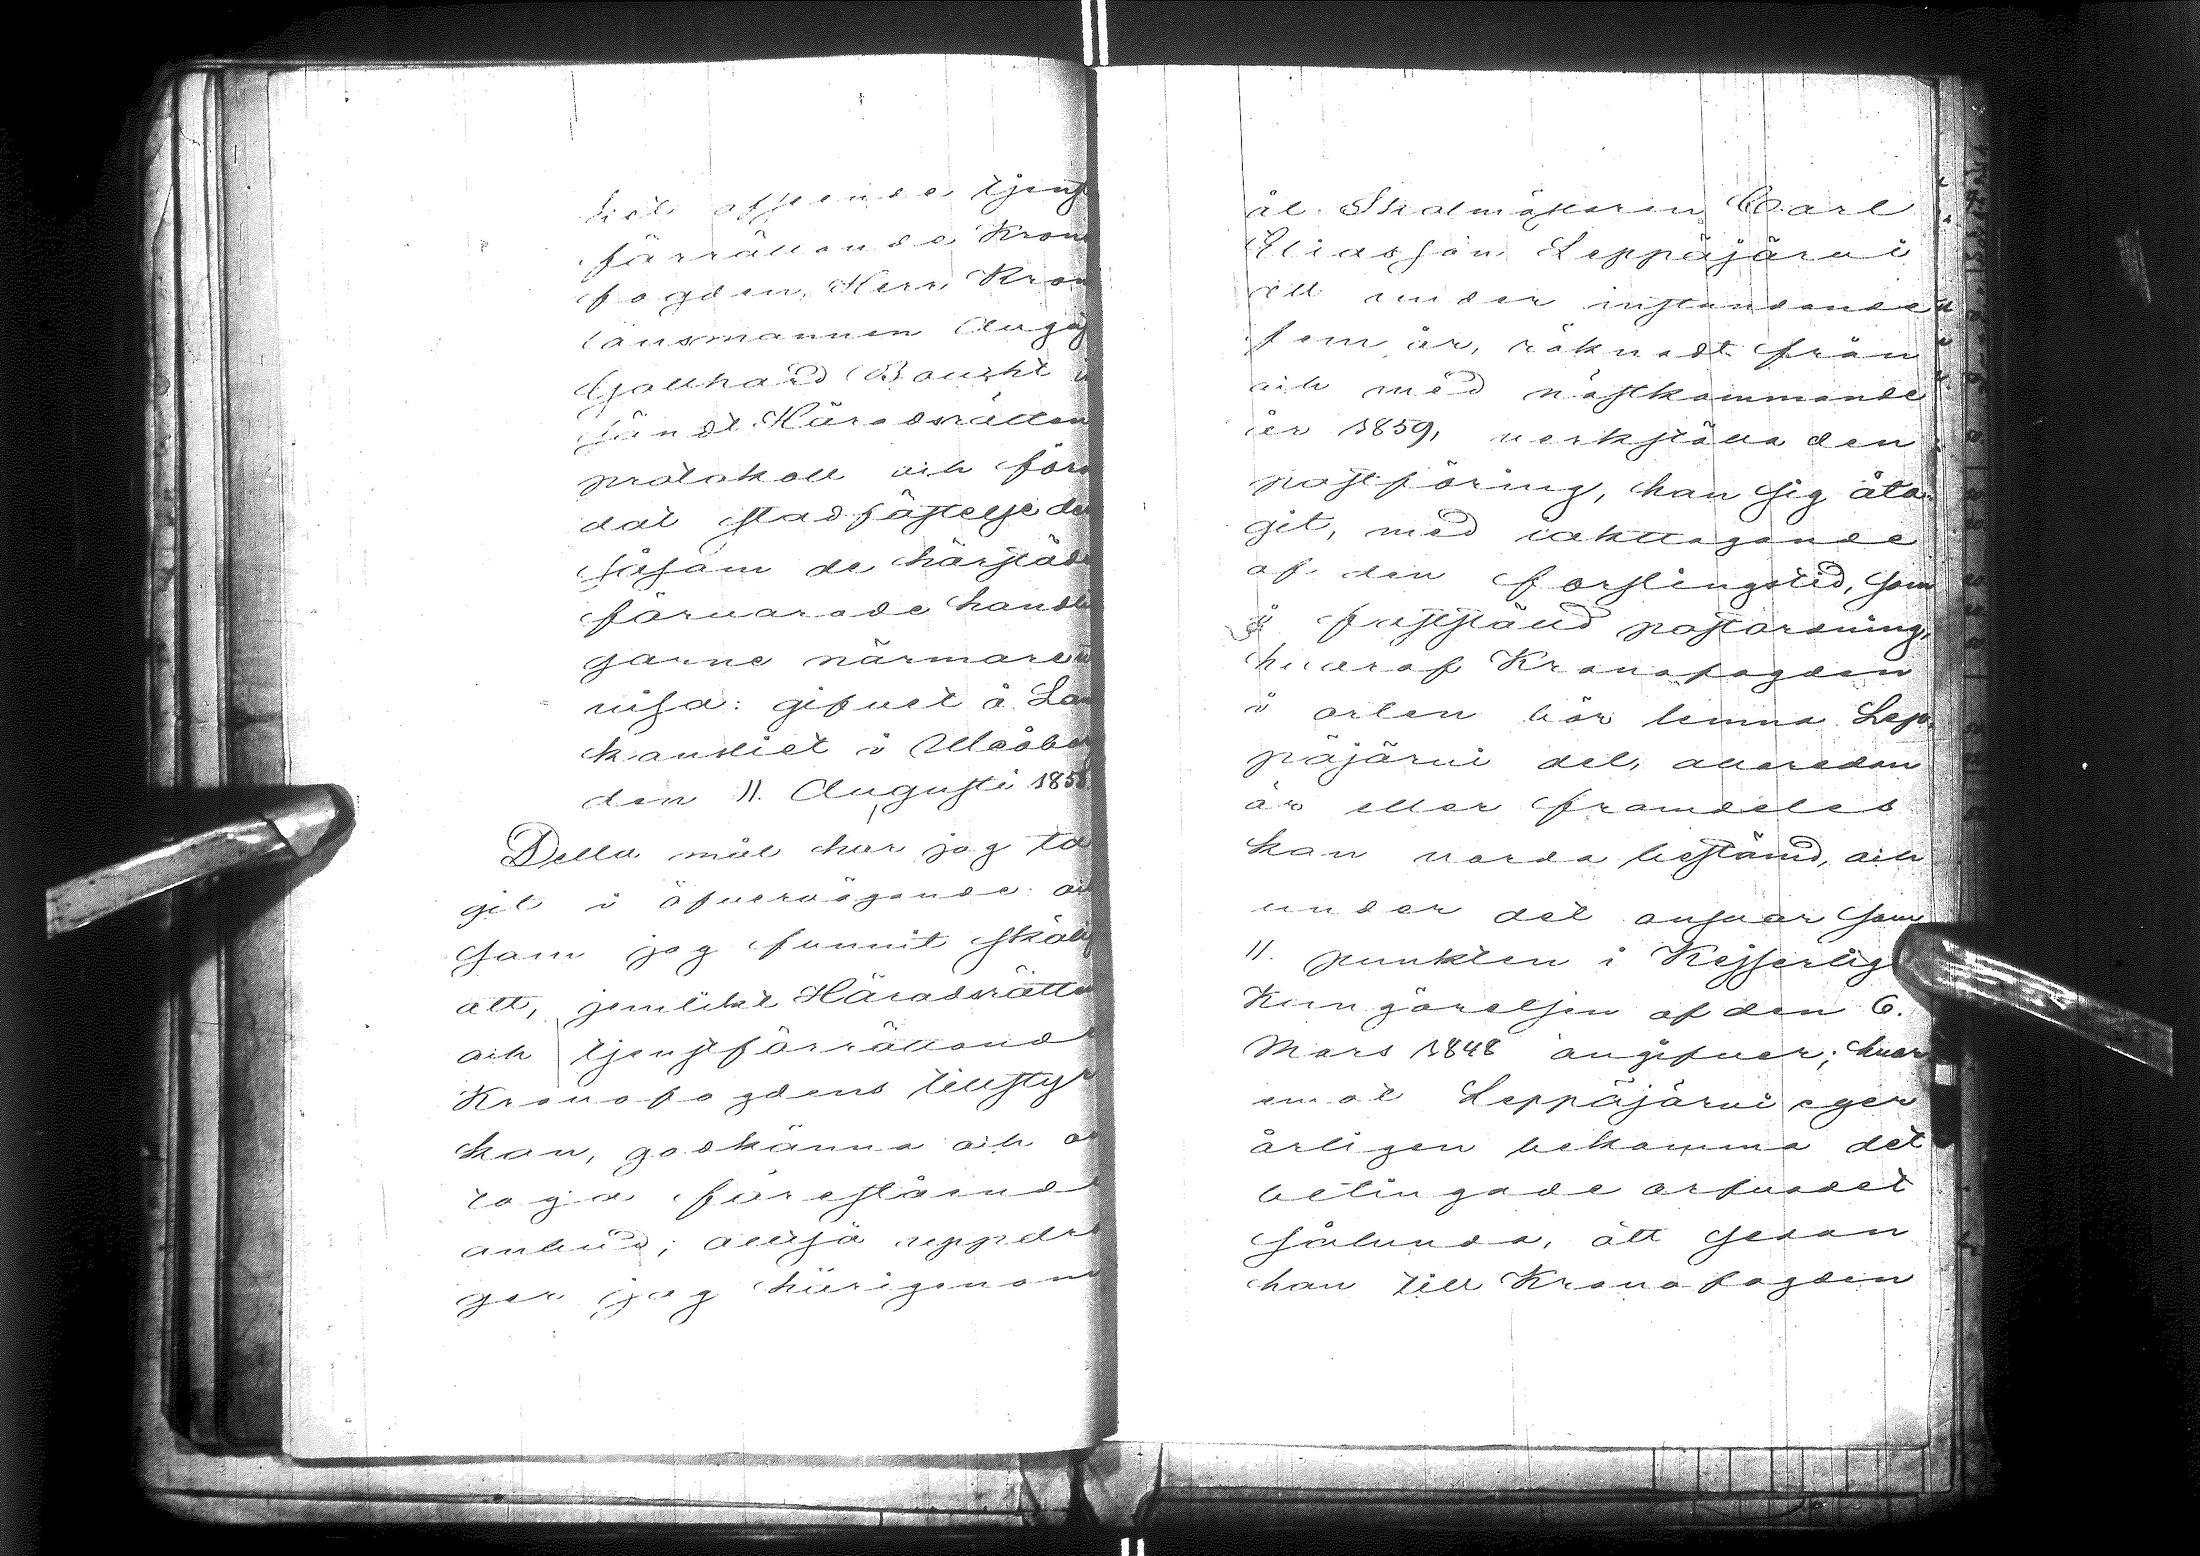 tjenst
förrättande Krono
fogden, Herr Krono
länsmannen August
Gotthard Boucht in
sändt Häradsrättens
protokoll och före
dat stadfästelse der
såsom de härstädes
förvarade handlin
garne närmare ut
visa: gifvet å Lands
kansliet i Uleåborg
den 11. Augusti 1858.
Detta mål har jag ta
git i öfvervägande och
som jag funnit skäligt
att, jemlikt Häradsrättens
och tjenstförrättande
Kronofogdens tillstyr
kan, godkänna och an
taga förestående
anbud; alltså uppdra
ger jag härigenom
åt Skolmästaren Carl
Eliasson Leppäjärvi
att under instundande
fem år, räknadt från
och med nästkommande
år 1859, verkställa den
postföring, han sig åta-
git, med iakttagande
af den forslingstid, som
i fastställd postordning,
hvaraf Kronofogden
i orten bör lemna Lep-
päjärvi del, allaredan
är eller framdeles
kan varda bestämd, och
under det ansvar som
11. punkten i Kejserliga
Kungörelsen af den 6.
Mars 1848 angifver; hvar
emot Leppäjärvi eger
årligen bekomma det
betingade arfvodet
sålunda, att sedan
han till Kronofogden